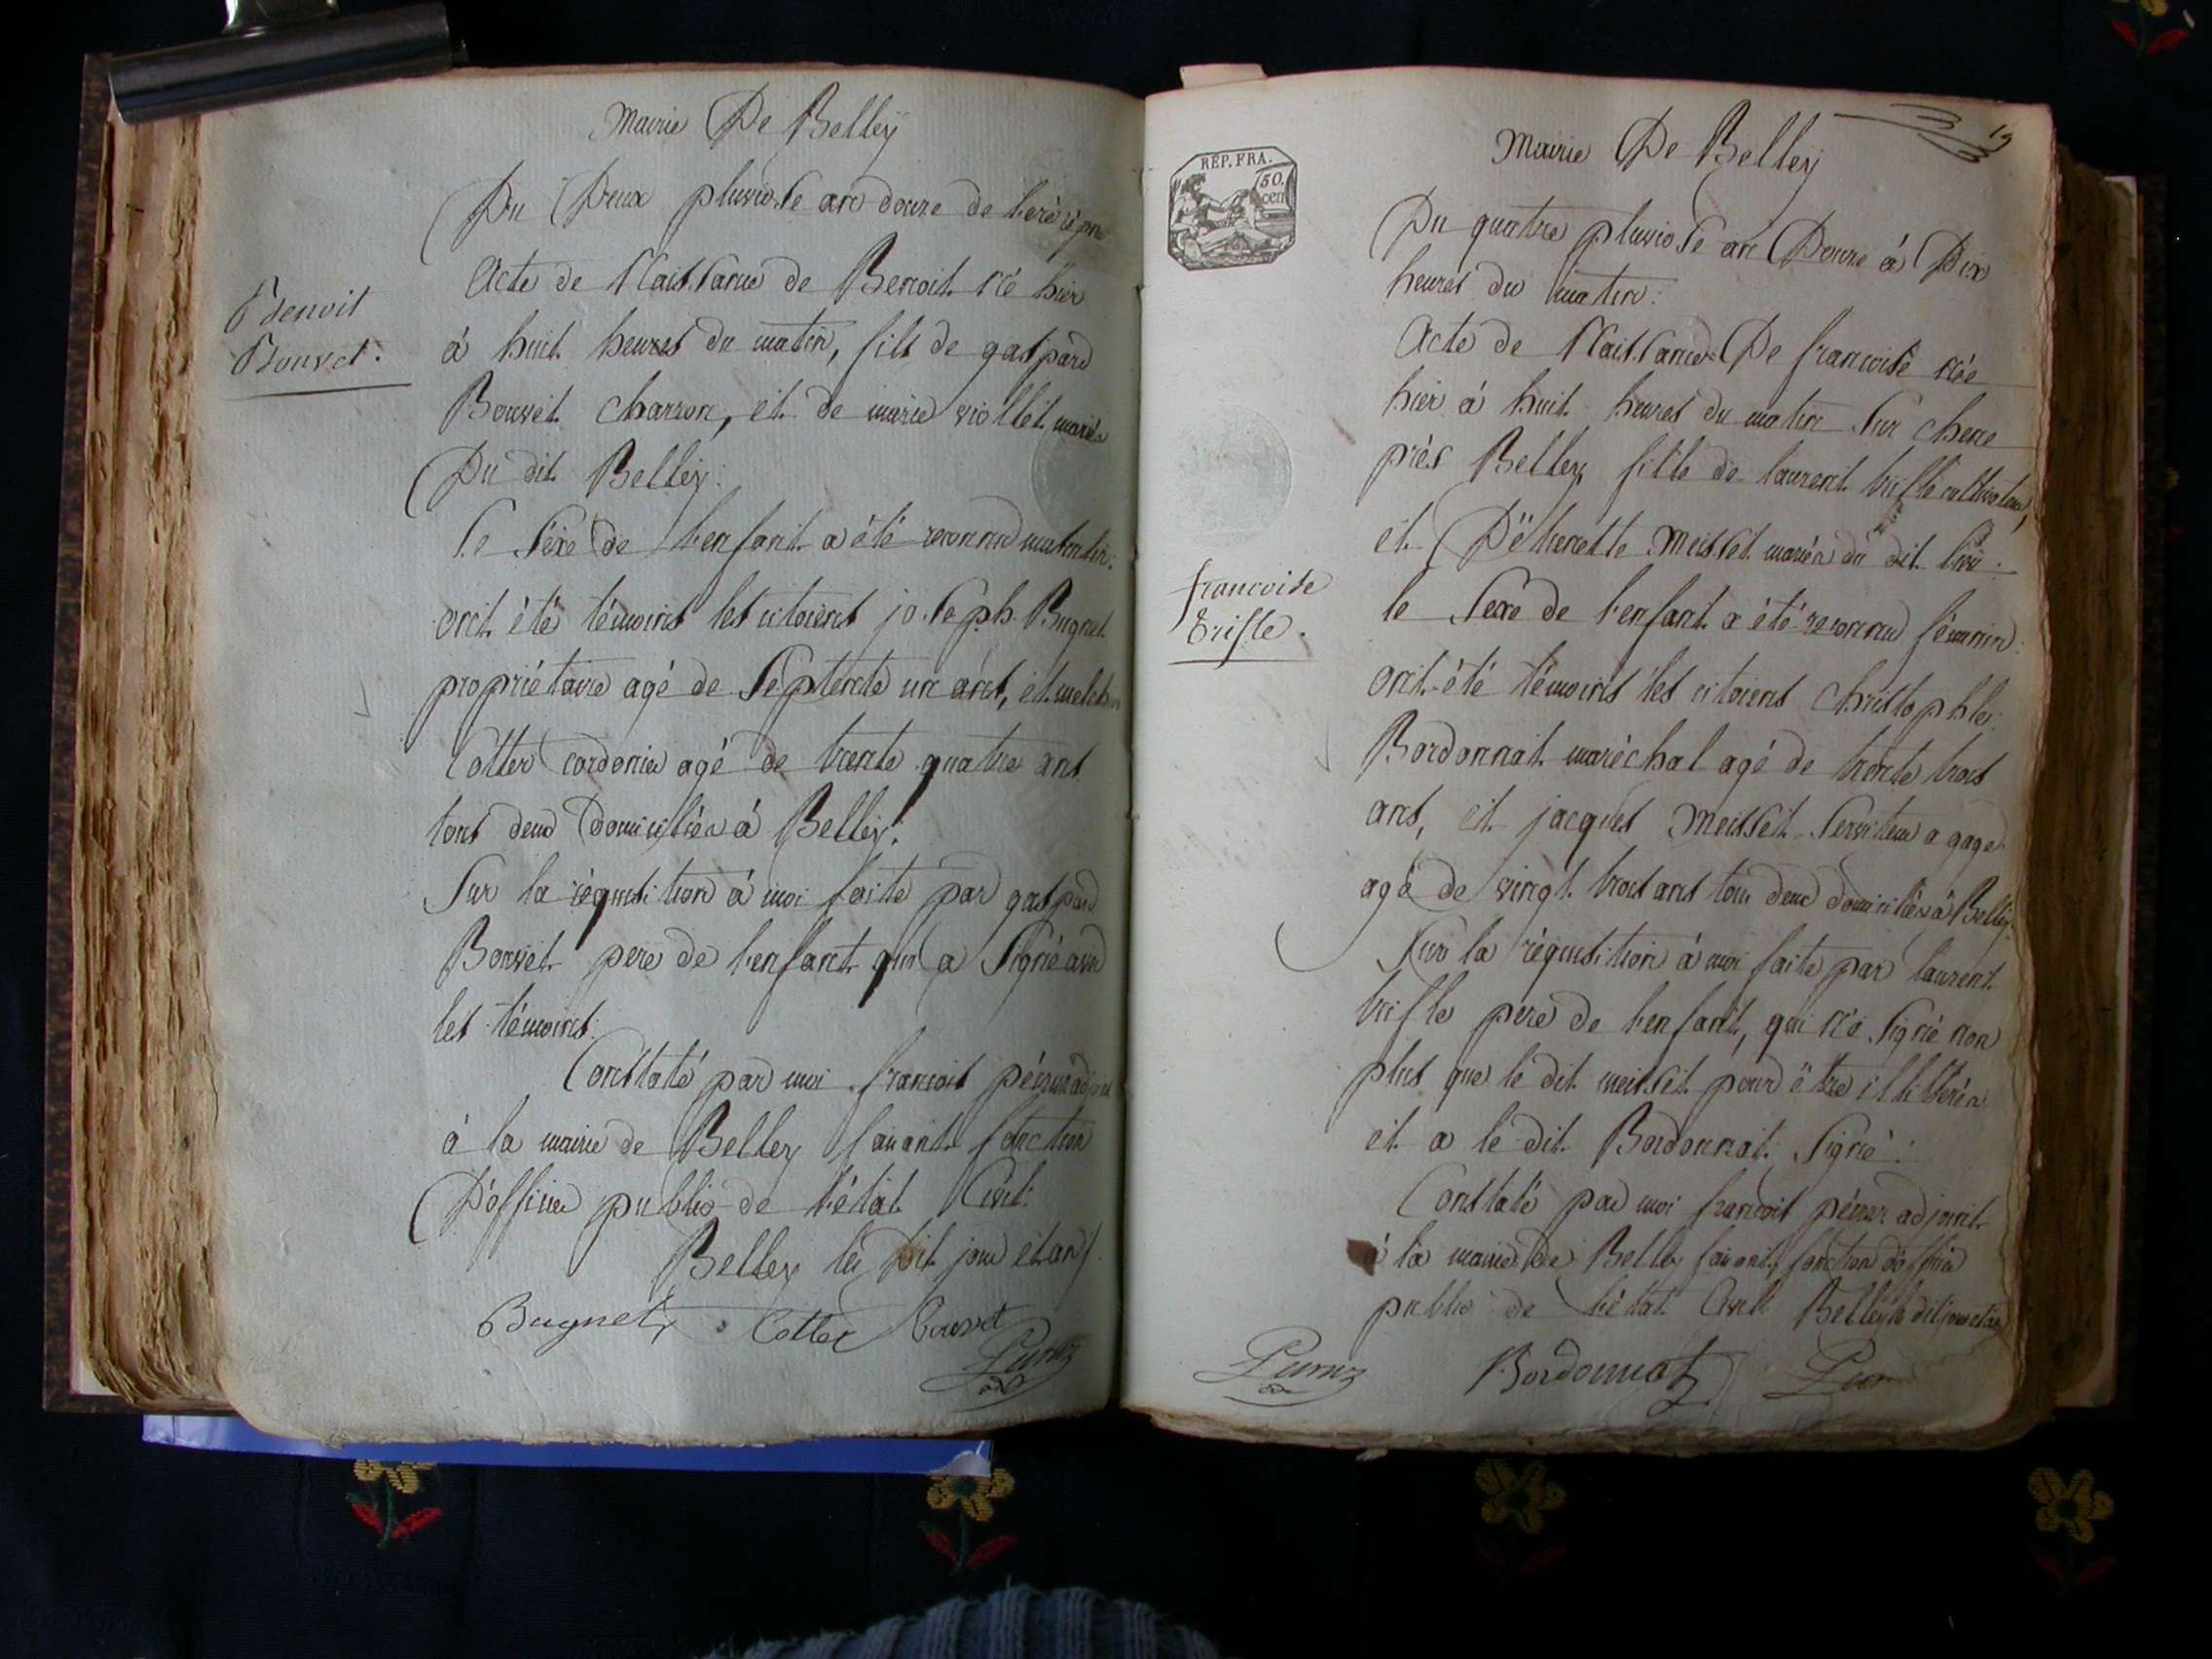 Mairie De Belley
Du Deux pluviose an douze de l'ere répne
Benoit
Bouvet.
Acte de Naissance de Benoit né hier
à huit heures du matin, fils de gaspard
Bouvet charron, et de marie viollet mariés
Du dit Belley:
Le Sexe de l'enfant a été reconnu masculin:
ont été témoins les citoiens joseph Bugnet
propriétaire agé de Septente un ans, et melchior
Cotter cordonier agé de trente quatre ans
tous deux domiciliés à Belley.
Sur la réquisition à moi faite par gaspard
Bouvet pere de l'enfant qui a Signé avec
les témoins:
Constaté par moi francois adjoint
à la mairie de Belley faisant fonction
D'officier public de l'état Civil
Belley les Dit jour et an
Bugnet Cotter Bouvet
Mairie De Belley
19
RÉP. FRA.
50.
cen
Du quatre pluviose an Douze à Dix
heures du matin:
Acte de Naissance De francoise née
hier à huit heures du matin Sur chene
près Belley, fille de laurent trifle cultivateur,
et D'étiennette Meisset mariés du dit lieu:
francoise
Trifle.
le Sexe de l'enfant a été reconnu féminin:
ont été témoins les citoiens christophle
Bordonnat maréchal agé de trente trois
ans, et jacques Meisset Serviteur a gage
agé de vingt trois ans tous deux domiciliés à Belley.
Sur la réquisition à moi faite par laurent
trifle pere de l'enfant, qui n'é Signé non
plus que le dit meisset pour être illitterés
et a le dit Bordonnat Signé:
Constaté par moi francois adjoint
à la mairie de Belley faisant fonction d'officier
public de l'état Civil Belley le dit jour et an
Bordonnat